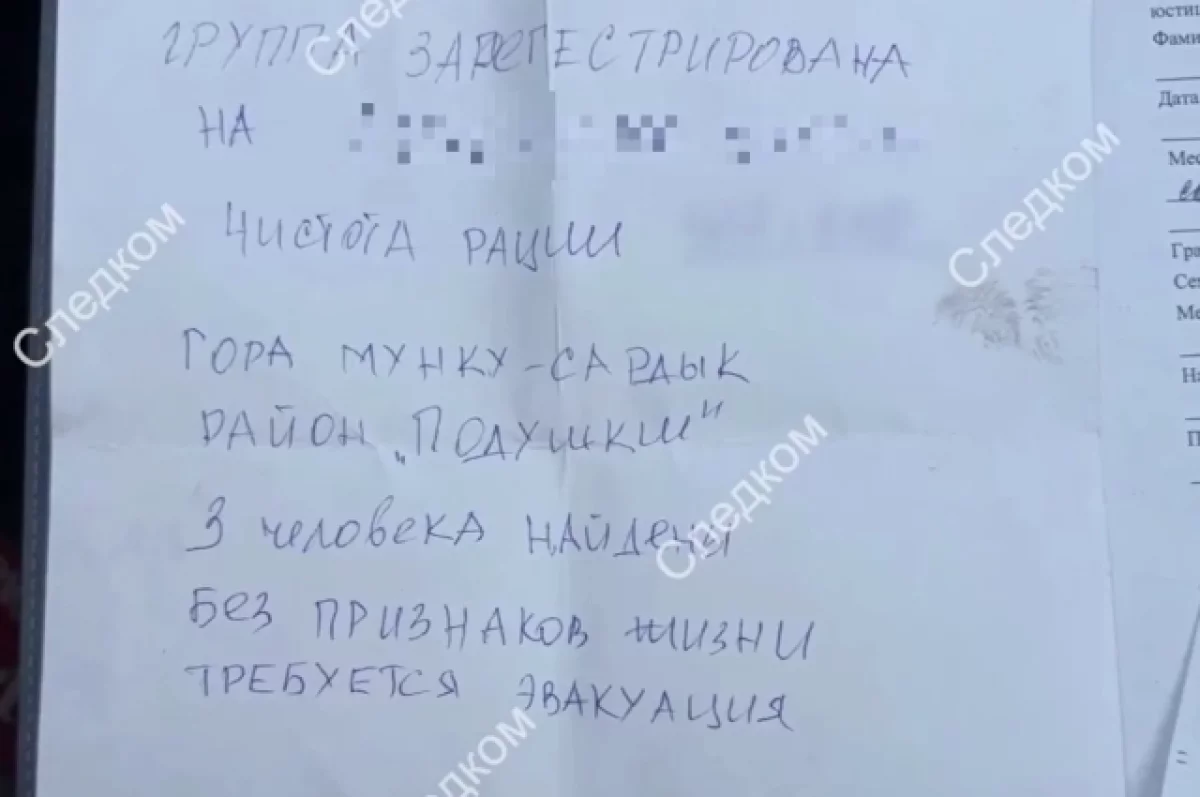 ГРУППА ЗАРЕГЕСТРИРОВАНА
НА
ЧИСТОТА РАЦИИ
ГОРА МУНКУ-САРДЫК
РАЙОН „ПОДУШКИ"
3 человека найдены
Без признаков жизни
ТРЕБУЕТСЯ ЭВАКУАЦИЯ
юстиц
Фами
Дата
Мес
Гра
Сем
Ме
На
П
Следком
Следком
Следком
Следком
Следком